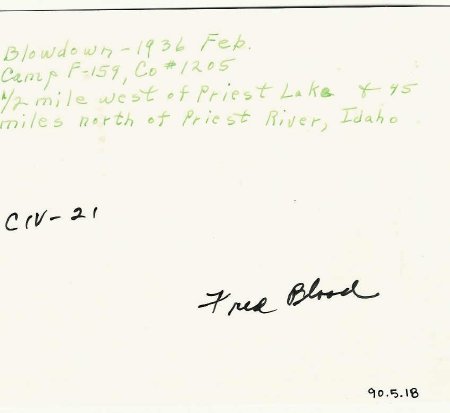 Blowdown - 1936 Feb.
Camp F-159, Co #1205
1/2 mile west of Priest Lake & 45
miles north of Priest River, Idaho
CIV-21
Fred Blood
90.5.18